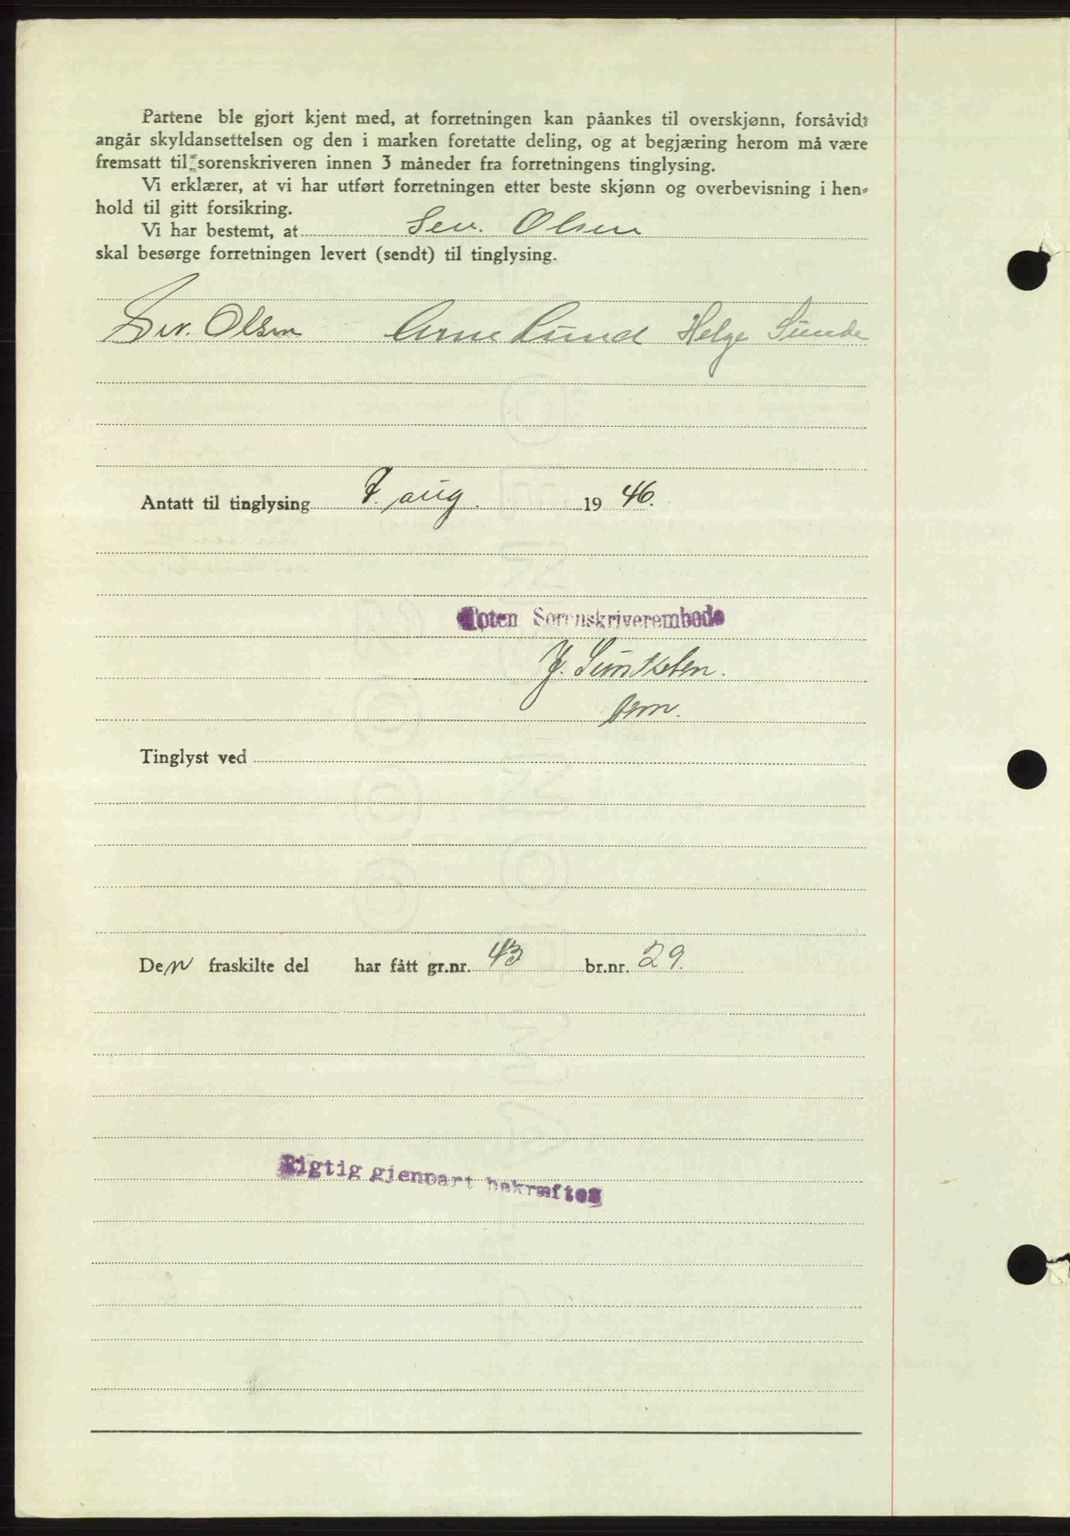 Partene ble gjort kjent med, at forretningen kan påankes til overskjønn, forsåvidt
angår skyldansettelsen og den i marken foretatte deling, og at begjæring herom må være
fremsatt til sorenskriveren innen 3 måneder fra forretningens tinglysing.
Vi erklærer, at vi har utført forretningen etter beste skjønn og overbevisning i hen-
hold til gitt forsikring.
Vi har bestemt, at Sev. Olsen
skal besørge forretningen levert (sendt) til tinglysing.
Sev. Olsen Arne Lund Helge Sunde
Antatt til tinglysing 7. aug. 1946.
Toten Sorenskriverembede
Tinglyst ved
Den fraskilte del har fått gr.nr. 43 br.nr. 29.
Rigtig gjenpart bekræftes